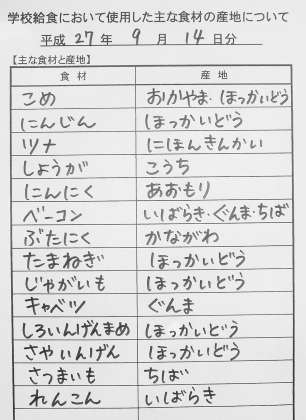 学校給食において使用した主な食材の産地について
平成 27 年 9 月 14 日分
【主な食材と産地】
食材 産地
こめ おかやま・ほっかいどう
にんじん ほっかいどう
ツナ にほんきんかい
しょうが こうち
にんにく あおもり
ベーコン いばらき・ぐんま・ちば
ぶたにく かながわ
たまねぎ ほっかいどう
じゃがいも ほっかいどう
キャベツ ぐんま
しろいんげんまめ ほっかいどう
さやいんげん ほっかいどう
さつまいも ちば
れんこん いばらき